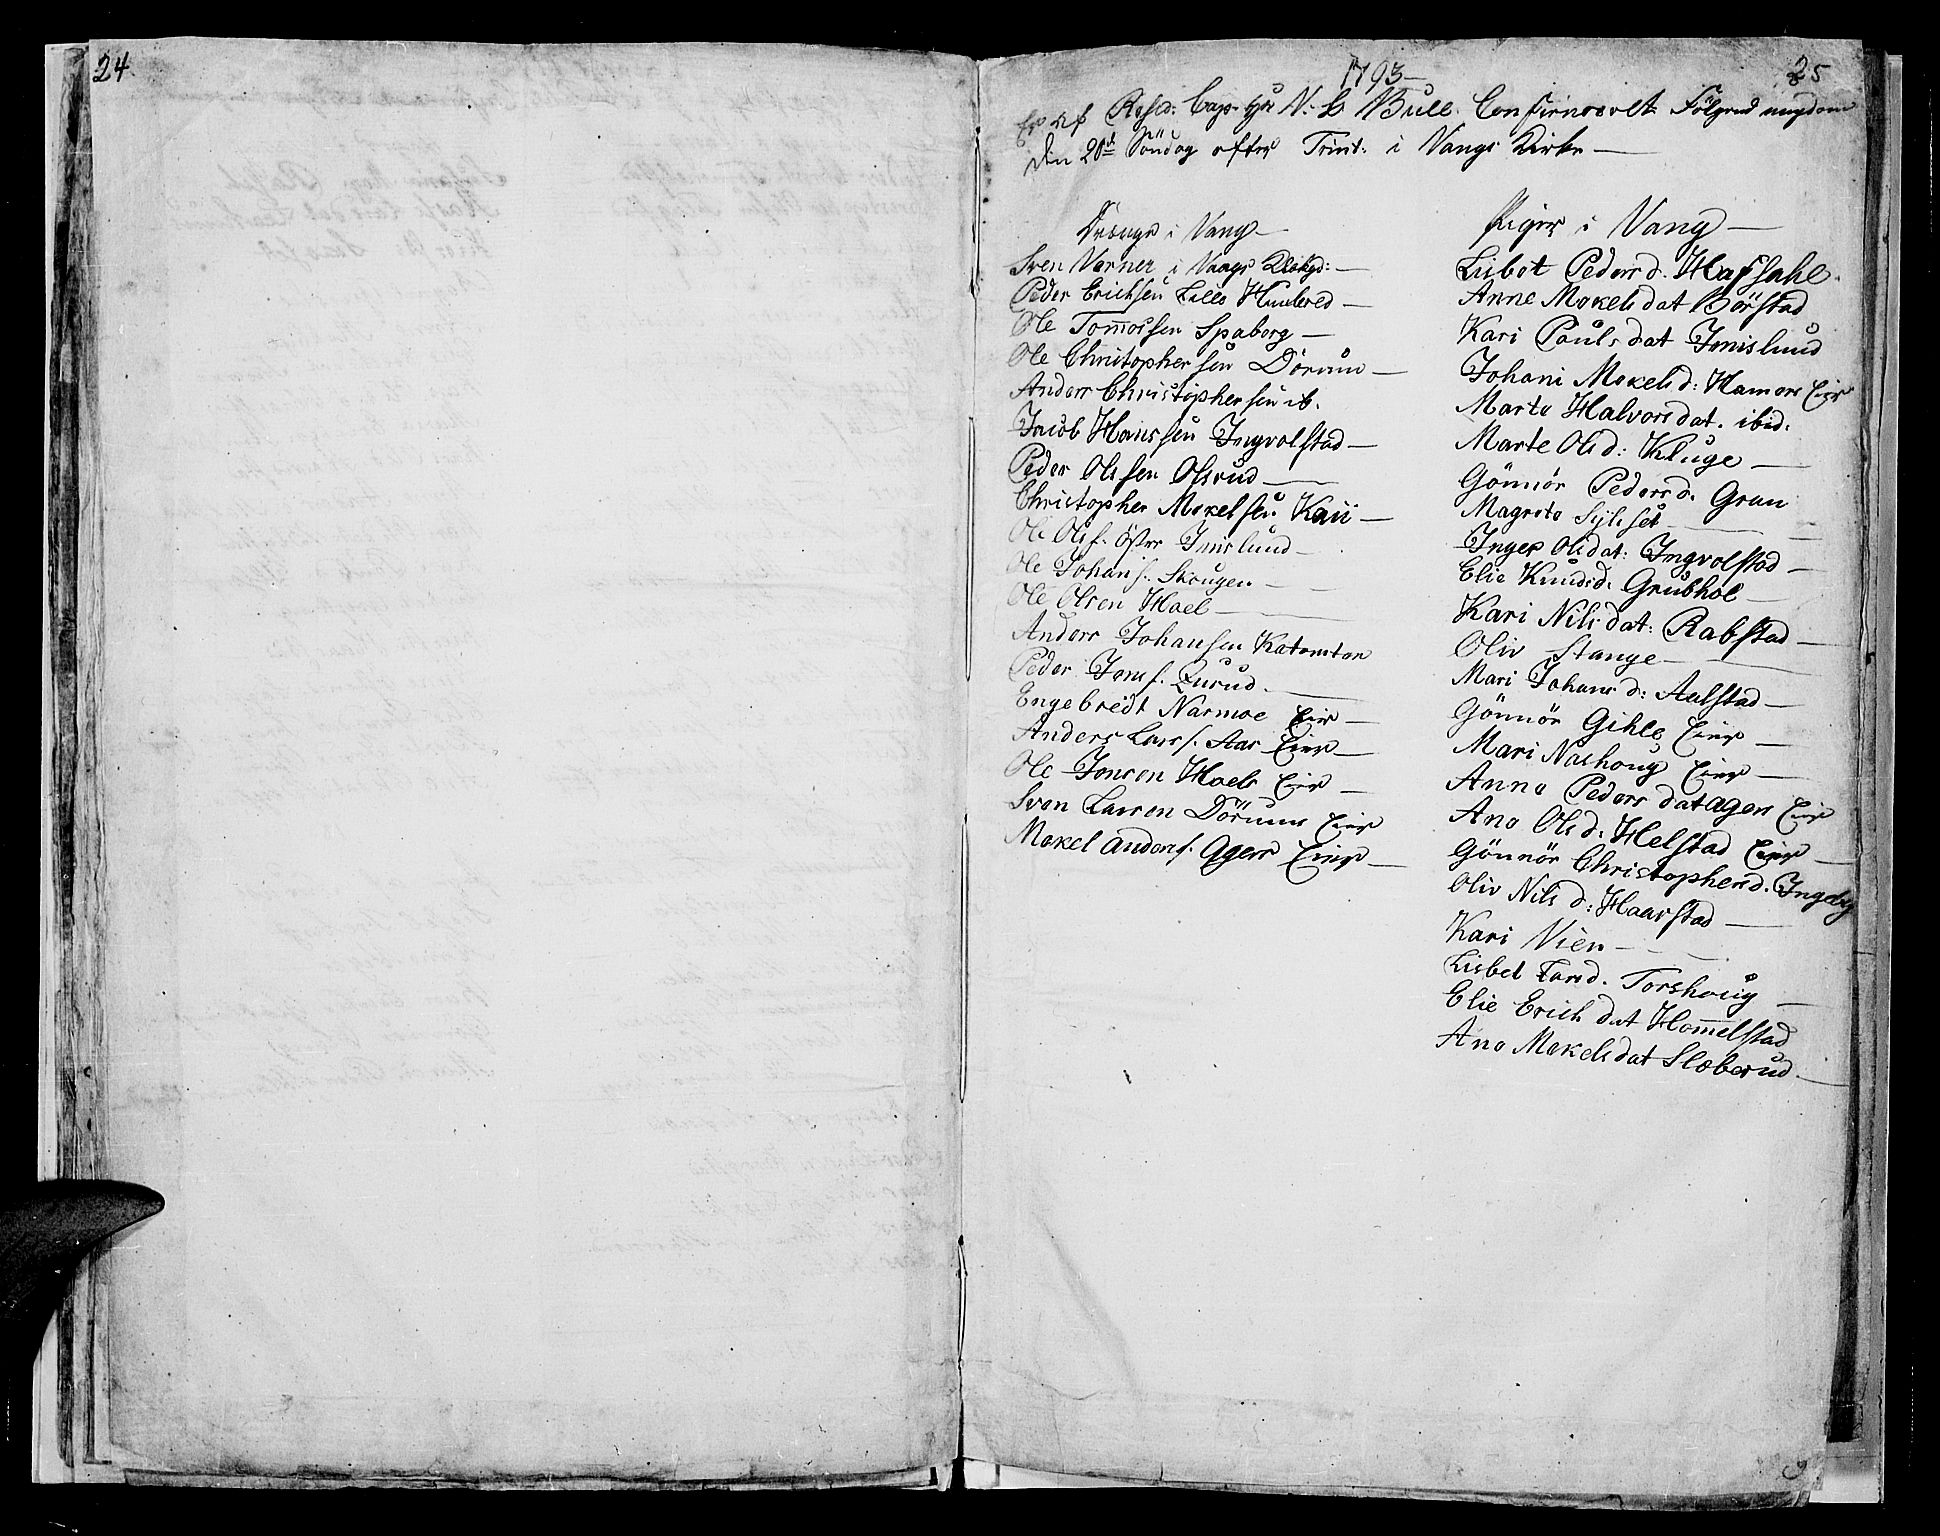 24
1793
25
Er af Resid: Cap. Hr N: L Bull. Confirmeret Følgende ungdom
Den 20de Söndag efter Trinit: i Vangs Kirke
Drenge i Vang
Sven Verner i Vangs Klokgd:
Peder Erichsen Lille Hubred
Ole Tom̄ossen Spaberg
Ole Christophersen Dörum
Anders Christophersen ib.
Jacob Hanssen Ingvolstad
Peder Olssen Olsrud
Christopher Mekelsen Kaii
Ole Olsf. Öster Imislund
Ole Johansf. Skougen
Ole Olsen Hoel
Anders Johansen
Peder Jonsf. Lurud
Engebredt Narmoe Eier
Anders Larsf. Aas Eier
Ole Jonsen Hoels Eier
Sven Larsen Dörums Eier
Mekel Andersf. Agers Eier
Piger i Vang
Lisbet Pedersd. Hafsahl
Anne Mekelsdat Börstad
Kari Poulsdat Imislund
Johani Mekelsd: Hamers Eier
Marte Halvorsdat. ibid.
Marte Olsd: Kluge
Gönnör Pedersd. Gran
Magrete Sylset
Inger Olsdat: Ingvolstad
Elie Knudsd. Grubhol
Kari Nilsdat: Rabstad
Oliv Stange
Mari Johansd: Aalstad
Gönnör Gihle Eier
Mari Noshoug Eier
Anne Pedersdat Agers Eier
Ane Olsd: Helstad Eier
Gönnör Christophersd. Ingeby
Oliv Nilsd: Haarstad
Kari Nien
Lisbet Larsd. Torshoug
Elie Erichdat Hom̄elstad
Ane Mekelsdat Sloberud